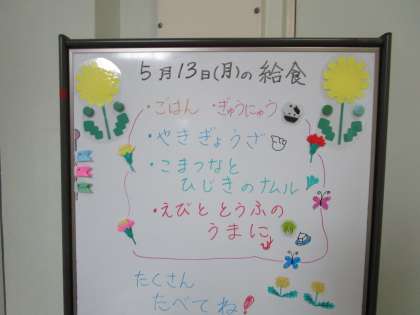 5月13日(月)の給食
・ごはん ・ぎゅうにゅう
・やきぎょうざ
・こまつなと
ひじきのナムル
・えびととうふの
うまに
たくさん
たべてね!